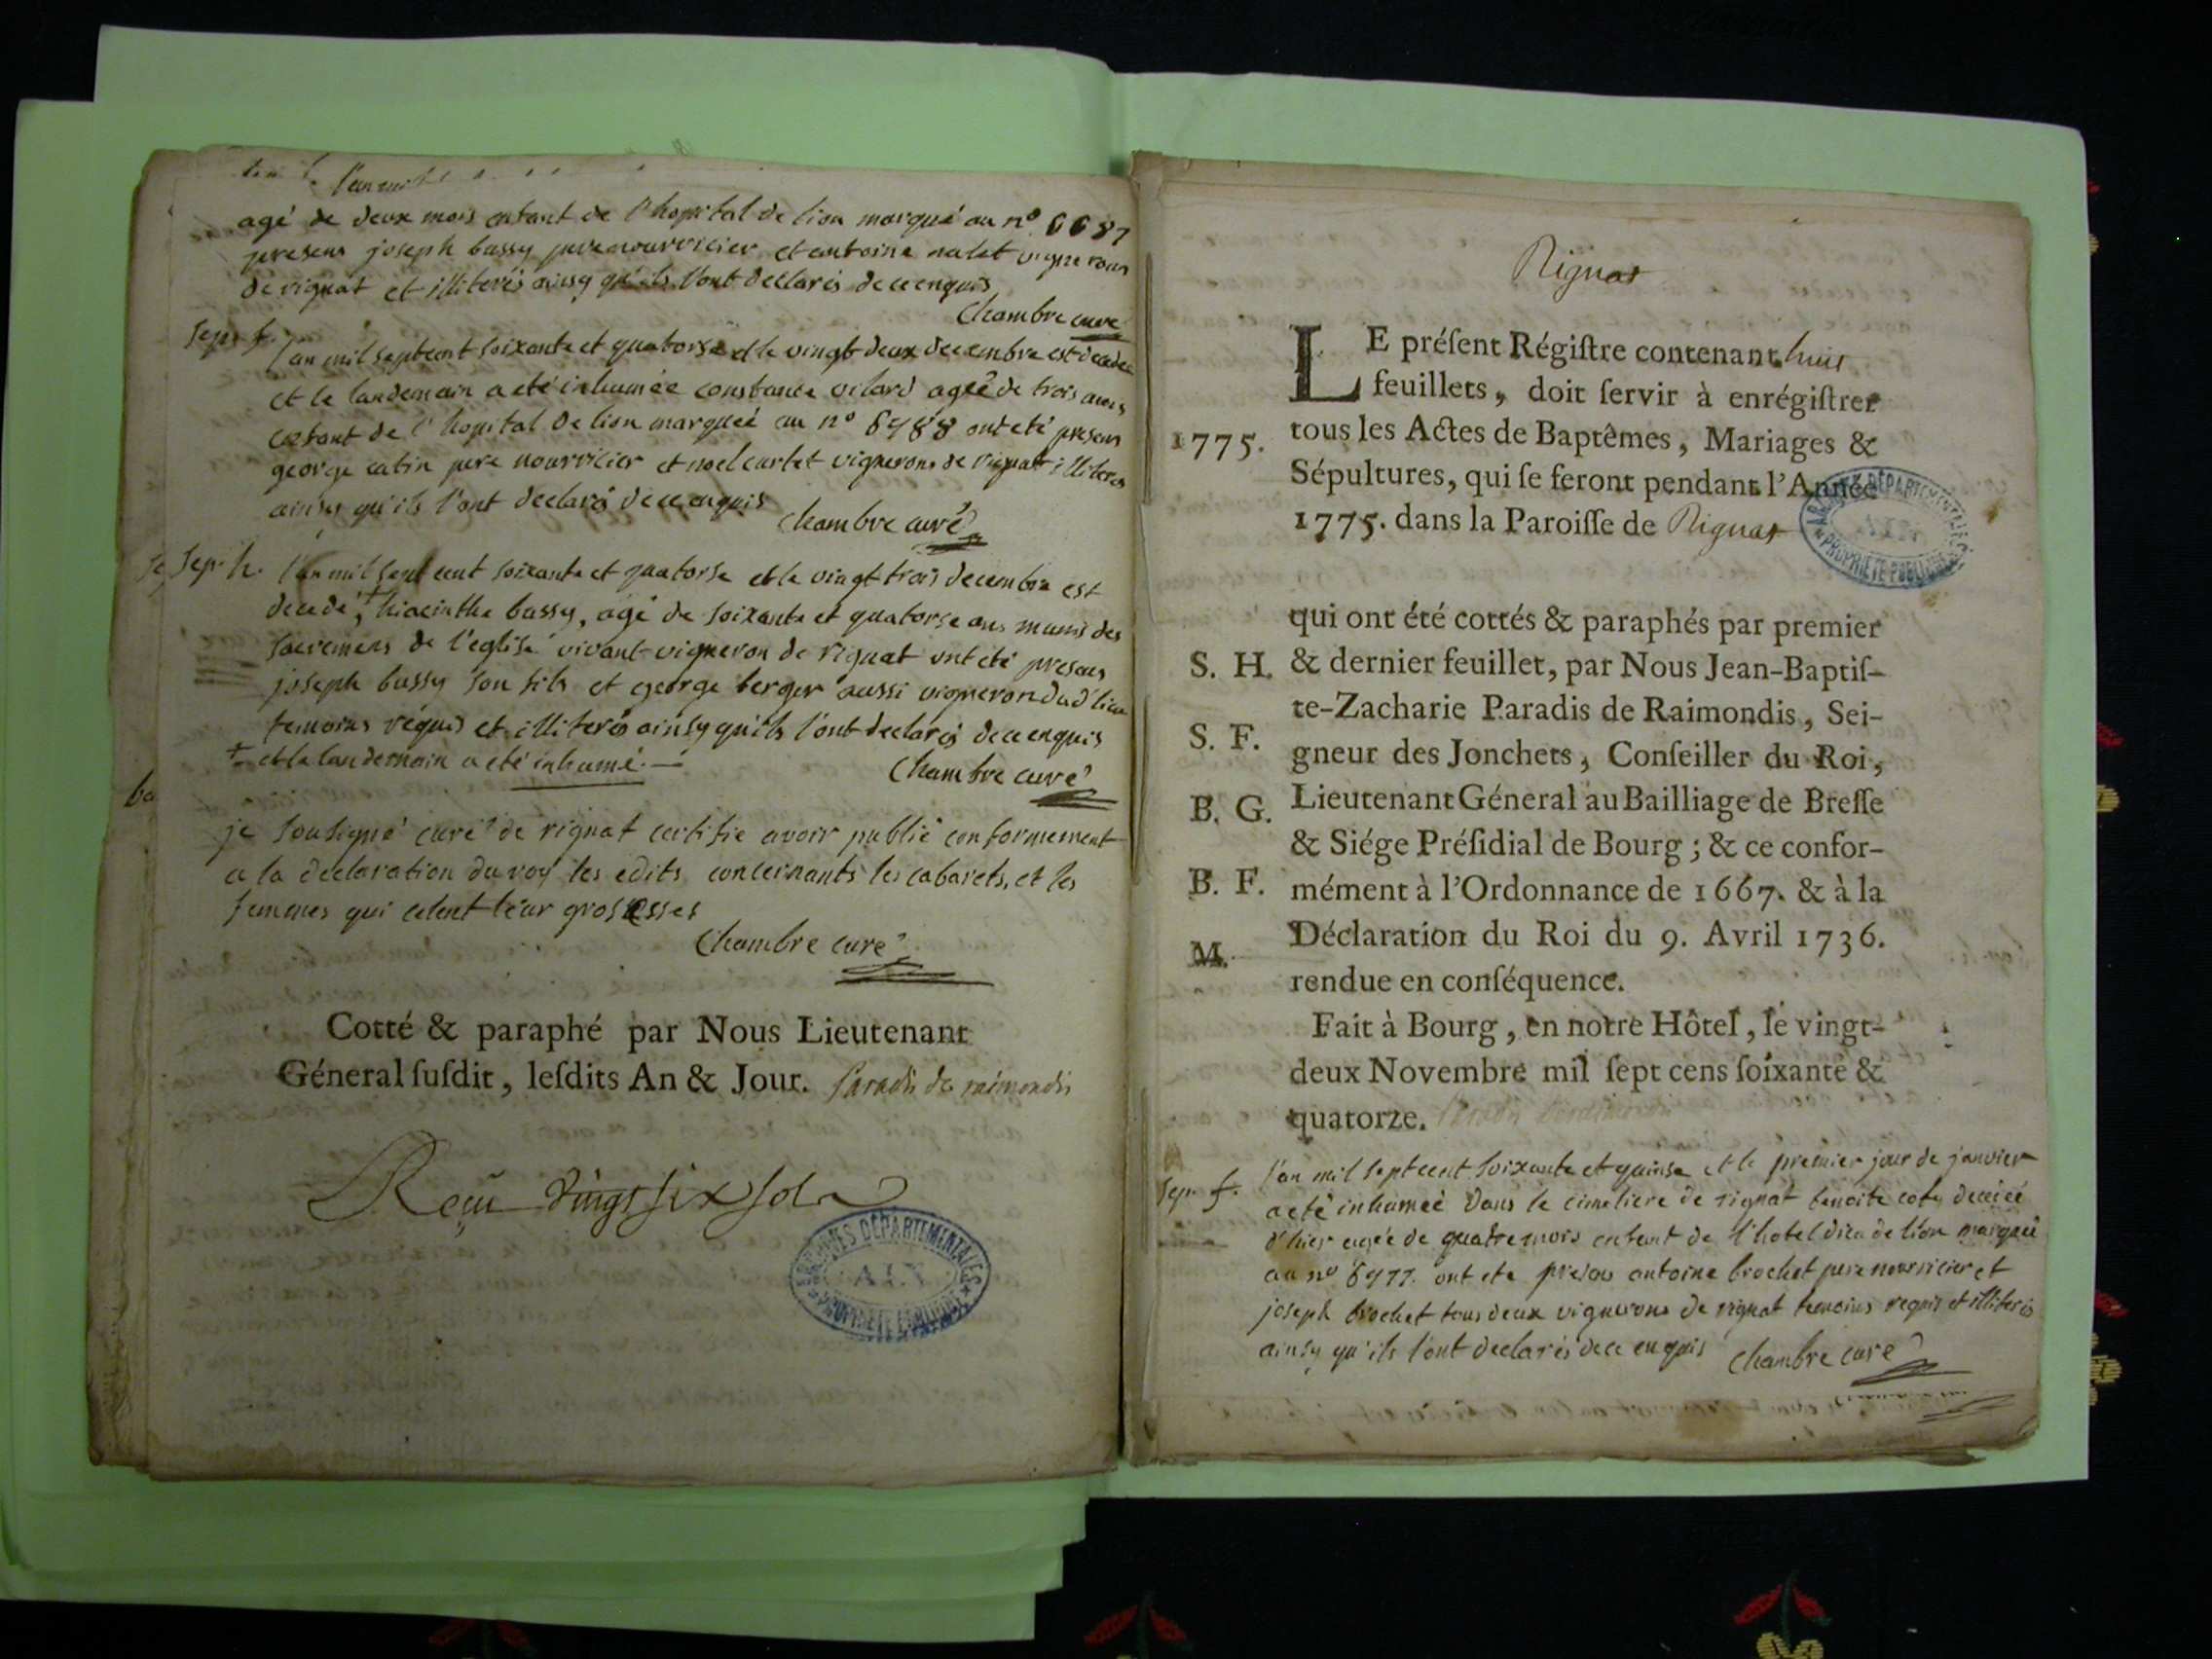 agé de deux mois enfant de l'hopital de lion marqué au nº 6687
presens joseph bussy pere nourricier et antoine nalet vignerons
de rignat et illiterés ainsy qu'ils l'ont declarés de ce enquis
Chambre curé
Sep. f.
l'an mil sept cent soixante et quatorse et le vingt deux decembre est decedée
et le landemain a eté inhumée constance vilard agée de trois mois
enfant de l'hopital de lion marqueé au nº 6988 ont eté presens
george catin pere nourricier et noel curtet vignerons de rignat illiteres
ainsy qu'ils l'ont declarés de ce enquis
Chambre curé
Sep. h.
l'an mil sept cent soixante et quatorse et le vingt trois decembre est
decedé, + hiacinthe bussy, agé de soixante et quatorse ans munis des
sacremens de l'eglise vivant vigneron de rignat ont eté presens
joseph bussy son fils et george berger aussi vigneron dud' lieu
temoins réquis et illiterés ainsy qu'ils l'ont declarés de ce enquis
+ et le landemain a eté inhumé. —
Chambre curé
ba
je soussigné curé de rignat certifie avoir publié conformement
a la declaration du roy les edits concernants les cabarets, et les
femmes qui celent leur grossesses
Chambre curé
Cotté & paraphé par Nous Lieutenant
Géneral ſuſdit, leſdits An & Jour. Paradis de raimondis
Reçu vingt six sols
ARCHIVES DÉPARTEMENTALES
AIN
PROPRIÉTÉ PUBLIQUE
Rignat
LE préſent Régiſtre contenant huit
feuillets, doit ſervir à enrégiſtrer
1775. tous les Actes de Baptêmes, Mariages &
Sépultures, qui ſe feront pendant l'Année
1775. dans la Paroiſſe de Rignat
ARCHIVES DÉPARTEMENTALES
AIN
PROPRIÉTÉ PUBLIQUE
qui ont été cottés & paraphés par premier
S. H. & dernier feuillet, par Nous Jean-Baptiſ-
te-Zacharie Paradis de Raimondis, Sei-
S. F. gneur des Jonchets, Conſeiller du Roi,
B. G. Lieutenant Géneral au Bailliage de Breſſe
& Siége Préſidial de Bourg; & ce confor-
B. F. mément à l'Ordonnance de 1667. & à la
M. Déclaration du Roi du 9. Avril 1736.
rendue en conſéquence.
Fait à Bourg, en notre Hôtel, le vingt-
deux Novembre mil ſept cens ſoixante &
quatorze.
Sep. f.
l'an mil sept cent soixante et quinse et le premier jour de janvier
a eté inhumeé dans le cimetiere de rignat benoite cote deceéé
d'hier ageé de quatre mois enfant de l'hotel dieu de lion marqueé
au nº 6977. ont ete presens antoine brochet pere nourricier et
joseph brochet tous deux vignerons de rignat temoins requis et illiterés
ainsy qu'ils l'ont declarés de ce enquis
Chambre curé